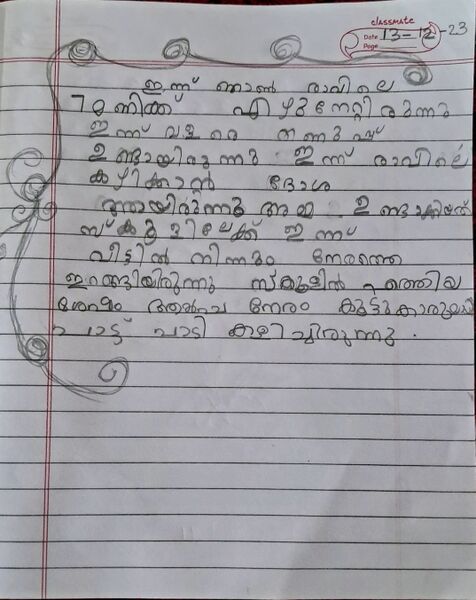 classmate
Date 13-12-23
Page
ഇന്ന് ഞാൻ രാവിലെ
7 മണിക്ക് എഴുനേറ്റിരുന്നു
ഇന്ന് വളരെ തണുപ്പ്
ഉണ്ടായിരുന്നു ഇന്ന് രാവിലെ
കഴിക്കാൻ ദോശ
ആയിരുന്നു അമ്മ ഉണ്ടാക്കിയത്
സ്കൂളിലേക്ക് ഇന്ന്
വീട്ടിൽ നിന്നും നേരത്തെ
ഇറങ്ങിയിരുന്നു സ്കൂളിൽ എത്തിയ
ശേഷം നേരം
പാട്ട് പാടി കളിച്ചിരുന്നു .